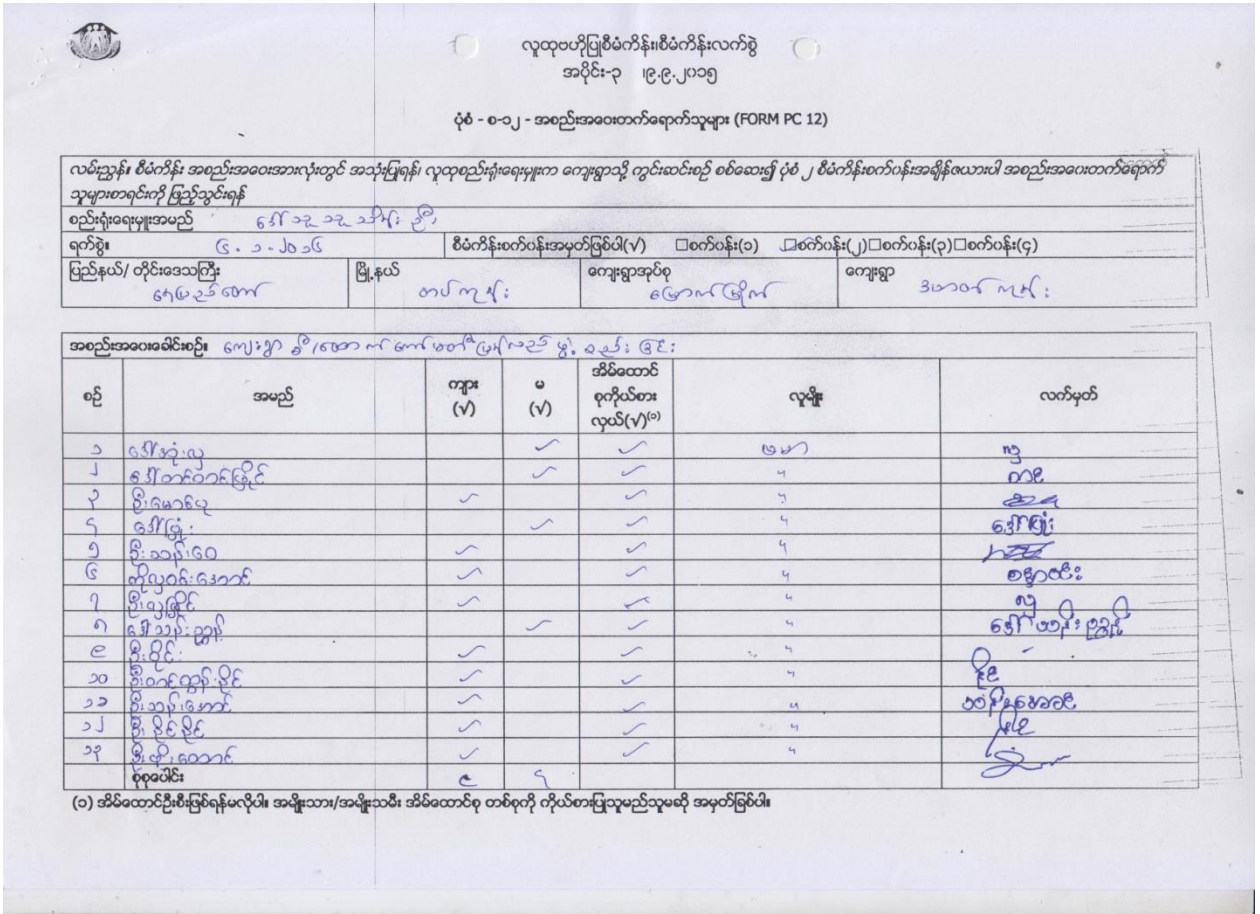 လူထုဗဟိုပြုစီမံကိန်း၊စီမံကိန်းလက်စွဲ
အပိုင်း-၃ ၊၉.၉.၂၀၁၅
ပုံစံ - စ-၁၂ - အစည်းအဝေးတက်ရောက်သူများ (FORM PC 12)
လမ်းညွှန်။ စီမံကိန်း အစည်းအဝေးအားလုံးတွင် အသုံးပြုရန်၊ လူထုစည်းရုံးရေးမှူးက ကျေးရွာသို့ ကွင်းဆင်းစဉ် စစ်ဆေး၍ ပုံစံ ၂ စီမံကိန်းစက်ပန်းအချိန်ဇယားပါ အစည်းအဝေးတက်ရောက်
သူများစာရင်းကို ဖြည့်သွင်းရန်
စည်းရုံးရေးမှူးအမည် ဒေါ်သူသူသိန်း
ရက်စွဲ။ ၆.၁.၂၀၁၆ စီမံကိန်းစက်ပန်းအမှတ်ဖြစ်ပါ(√) □စက်ပန်း(၁) □စက်ပန်း(၂)□စက်ပန်း(၃)□စက်ပန်း(၄)
ပြည်နယ်/ တိုင်းဒေသကြီး မြို့နယ် ကျေးရွာအုပ်စု ကျေးရွာ
နေပြည်တော် တပ်ကုန်း မြောက်မြိုက်
အစည်းအဝေးခေါင်းစဉ်။ ကျေးရွာ ကော်မတီ ပြန်လည် ဖွဲ့စည်းခြင်း
စဉ် အမည် ကျား (√) မ (√) အိမ်ထောင်စုကိုယ်စားလှယ်(√)⁽¹⁾ လူမျိုး လက်မှတ်
၁ ဒေါ်အုံးလှ ✓ ✓ ဗမာ လှ
၂ ဒေါ်တင်တင်မြိုင် ✓ ✓ "
၃ ဦးမောင်ယု ✓ ✓ "
၄ ဒေါ်မြုံး ✓ ✓ " ဒေါ်မြုံး
၅ ဦးသန်းဝေ ✓ ✓ "
၆ ကိုလှဝင်းအောင် ✓ ✓ "
၇ ဦးလှမြိုင် ✓ ✓ " လှ
၈ ဒေါ်သန်းညွန့် ✓ ✓ " ဒေါ်သန်းညွန့်
၉ ဦးဝိုင်း ✓ ✓ "
၁၀ ဦးတင်ထွန်းခိုင် ✓ ✓ "
၁၁ ဦးသန်းအောင် ✓ ✓ " သန်းအောင်
၁၂ ဦးခိုင်ခိုင် ✓ ✓ "
၁၃ ✓ ✓ "
စုစုပေါင်း ၉ ၄
(၁) အိမ်ထောင်ဦးစီးဖြစ်ရန်မလိုပါ။ အမျိုးသား/အမျိုးသမီး အိမ်ထောင်စု တစ်စုကို ကိုယ်စားပြုသူမည်သူမဆို အမှတ်ခြစ်ပါ။